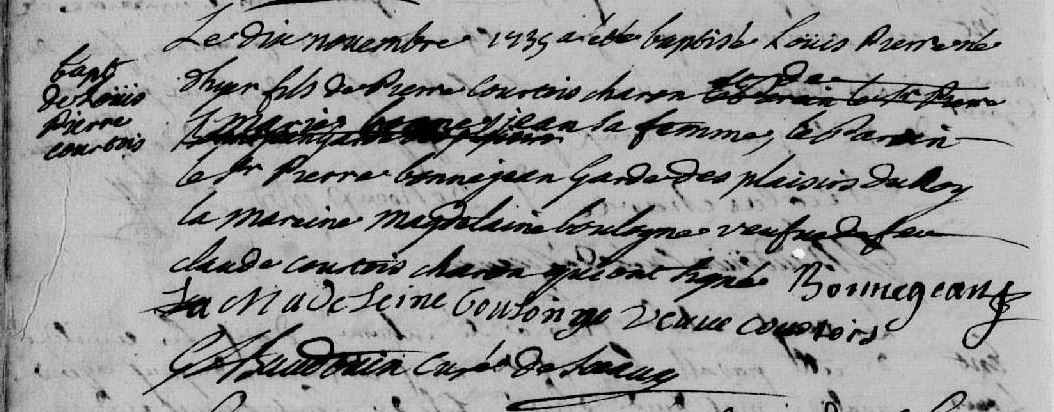 bapt
de Loüis
Pierre
courtois
Le dix novembre 1735 a été baptisé Louis Pierre né
d'hyer fils de Pierre Courtois charon et de
le parain le Sr Pierre
marie bonnejean sa femme, le Parain
le Sr Pierre bonnejean Garde des plaisirs du Roy
la mareine Magdelaine boulogne veufve de feu
claude courtois charon qui ont signé Bonnegean
La Madeleine boulonge veuve courtois
curé de